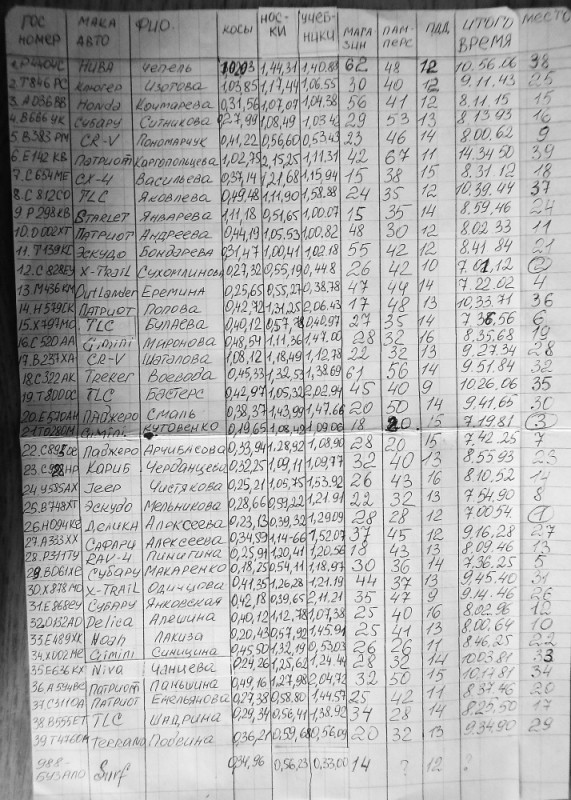 ГОС НОМЕР МАКА АВТО ФИО. КОСЫ НОС-КИ УЧЕБ-НИКИ МАГАЗИН ПАМ-ПЕРС ПДД ИТОГО ВРЕМЯ МЕСТО
1. НИВА Чепель 1,44,31 1,40,88 62 48 12 10.56.06 38
2. Т846РС Клюгер Изотова 1,03,85 1,17,44 1,06.55 30 40 12 9.11.43 25
3. А036ВВ Honda Кочмарева 0,31,56 1,07,07 1,04,38 56 41 12 8.11.15 15
4. В666УК Субару Ситникова 0,27,99 1,08,49 1,03,42 29 53 13 8.13.93 16
5. В383РМ CR-V Пономарчук 0,41,22 0,56,60 0,53,43 23 46 14 8.00.62 9
6. Е142КВ Патриот Карпопольцева 1,02,75 2,15,25 1,11,31 42 67 11 14.34.50 39
7. С654МЕ СХ-4 Васильева 0,37,14 1,21,68 1,15,94 15 38 15 8.31.12 18
8. С812СО TLC Яковлева 0,49,48 1,11,90 1,58,88 24 35 12 10.39.44 37
9. Р298КВ Starlet Январева 1,11,18 0,51,65 1,00,07 15 35 14 8.59.46 24
10. О002ХТ Патриот Андреева 0,44,19 1,05,53 1,00,82 48 30 12 8.02.33 11
11. Т139КС Эскудо Бондарева 0,31,47 1,00,41 1,02,18 55 42 12 8.41.84 21
12. С828ЕЗ X-Trail Сухомлинов 0,27,32 0,55,19 0,44,8 26 42 10 7.01.12 2
13. М436КМ Outlander Еремина 0,25,65 0,55,27 0,38,78 47 49 14 7.22.02 4
14. Н579СК Патриот Попова 0,42,72 1,31,25 2,06,43 17 48 13 10.33.71 36
15. Х797МО TLC Булаева 0,40,12 0,57,78 0,40,97 27 35 14 7.36,56 6
16. С520АА Gimini Миронова 0,48,54 1,11,36 1,47,00 28 32 16 8.35.68 19
17. В237ХА CR-V Шаталова 1,08,12 1,18,49 1,12,78 22 32 13 9.27.34 28
18. С322АК Treker Воевода 0,45,33 1,32,53 1,38,69 61 56 14 9.51.84 32
19. Т800ОС TLC Бастерс 0,42,97 1,05,32 2,02,94 45 40 9 10.26.06 35
20. Е570АН Паджеро Смаль 0,38,37 1,43,99 1,47,66 20 50 14 9.41.65 30
21. Т028ОМ Gimini Кутовенко 0,19,65 1,08,42 1,09,06 18 20 15 7.19.81 3
22. С895ОЕ Паджеро Арчибасова 0,33,94 1,28,92 1,08,90 28 20 15 7.42.25 7
23. Кариб Черданцева 0,32,25 1,09,11 1,09,77 32 40 13 8.55.93 23
24. У585АХ Jeep Чистякова 0,25,21 1,05,75 1,53,92 26 43 16 8.10.52 14
25. В748ХТ Эскудо Мельникова 0,28,66 0,59,22 1,21,91 22 32 13 7.54.90 8
26. Н094КЕ Делика Алексеева 0,23,13 0,39,32 1,29,09 28 28 12 7.00.54 1
27. А333ХХ Сафари Алексеева 0,34,59 1,14-66 1,52,07 37 45 12 9.16.28 27
28. Р311ТУ RAV-4 Пинигина 0,25,91 1,20,41 1,20,56 18 43 13 8.09.46 13
29. В061ХЕ Субару Макаренко 0,18,25 0,54,11 1,18,97 30 36 14 7.36.25 5
30. Х878МО X-Trail Одинцова 0,41,35 1,26,28 1,21,19 44 37 13 9.45.40 31
31. Е868ЕУ Субару Янковская 0,42,18 0,39,65 2,11,21 35 47 9 9.14.46 26
32. О152АО Delica Алешина 0,40,12 1,12,78 1,07,38 25 40 16 8.02.96 12
33. Е489ХХ Лакиза 0,20,43 0,57,92 1,45,91 25 41 13 8.00.64 10
34. Х002НЕ Gimini Синицына 0,45,50 1,32,19 0,53,03 26 26 11 8.46.25 22
35. Е636КХ Niva Чанцева 0,24,26 1,25,62 1,24,44 28 32 14 10.03.81 33
36. А594ВС Патриот Паньшина 0,49,16 1,27,98 2,04,72 32 50 15 10.17.81 34
37. С311ОА Патриот Емельянова 0,27,38 0,58,80 1,44,57 25 42 11 8.37.46 20
38. В555ЕТ TLC Шадрина 0,29,34 0,56,41 1,38,92 34 28 14 8.29.50 17
39. Т476ОМ Terrano Повсина 0,36,21 0,59,68 0,56,09 20 32 13 9.34.90 29
988-БУЗАЛО Surf 0,34,96 0,56,23 0,33,00 14 ? 12 ?